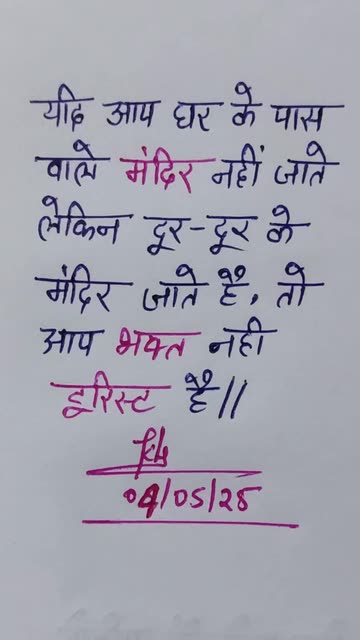 यदि आप घर के पास
वाले मंदिर नहीं जाते
लेकिन दूर-दूर के
मंदिर जाते हैं, तो
आप भक्त नही
टूरिस्ट है॥
04/05/25